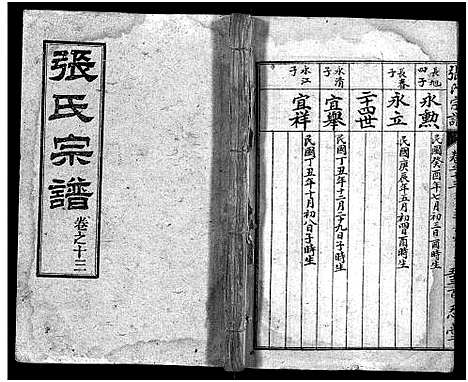 張氏宗譜
卷之十三
張氏宗譜
長旭四子
永勲
民國癸酉年七月初三日酉時生
長春子
永立
民國庚辰年五月初四日酉時生
二十四世
永清子
宜舉
民國丁丑年十二月二十九日子時生
永江子
宜祥
民國丁丑年十月初八日子時生